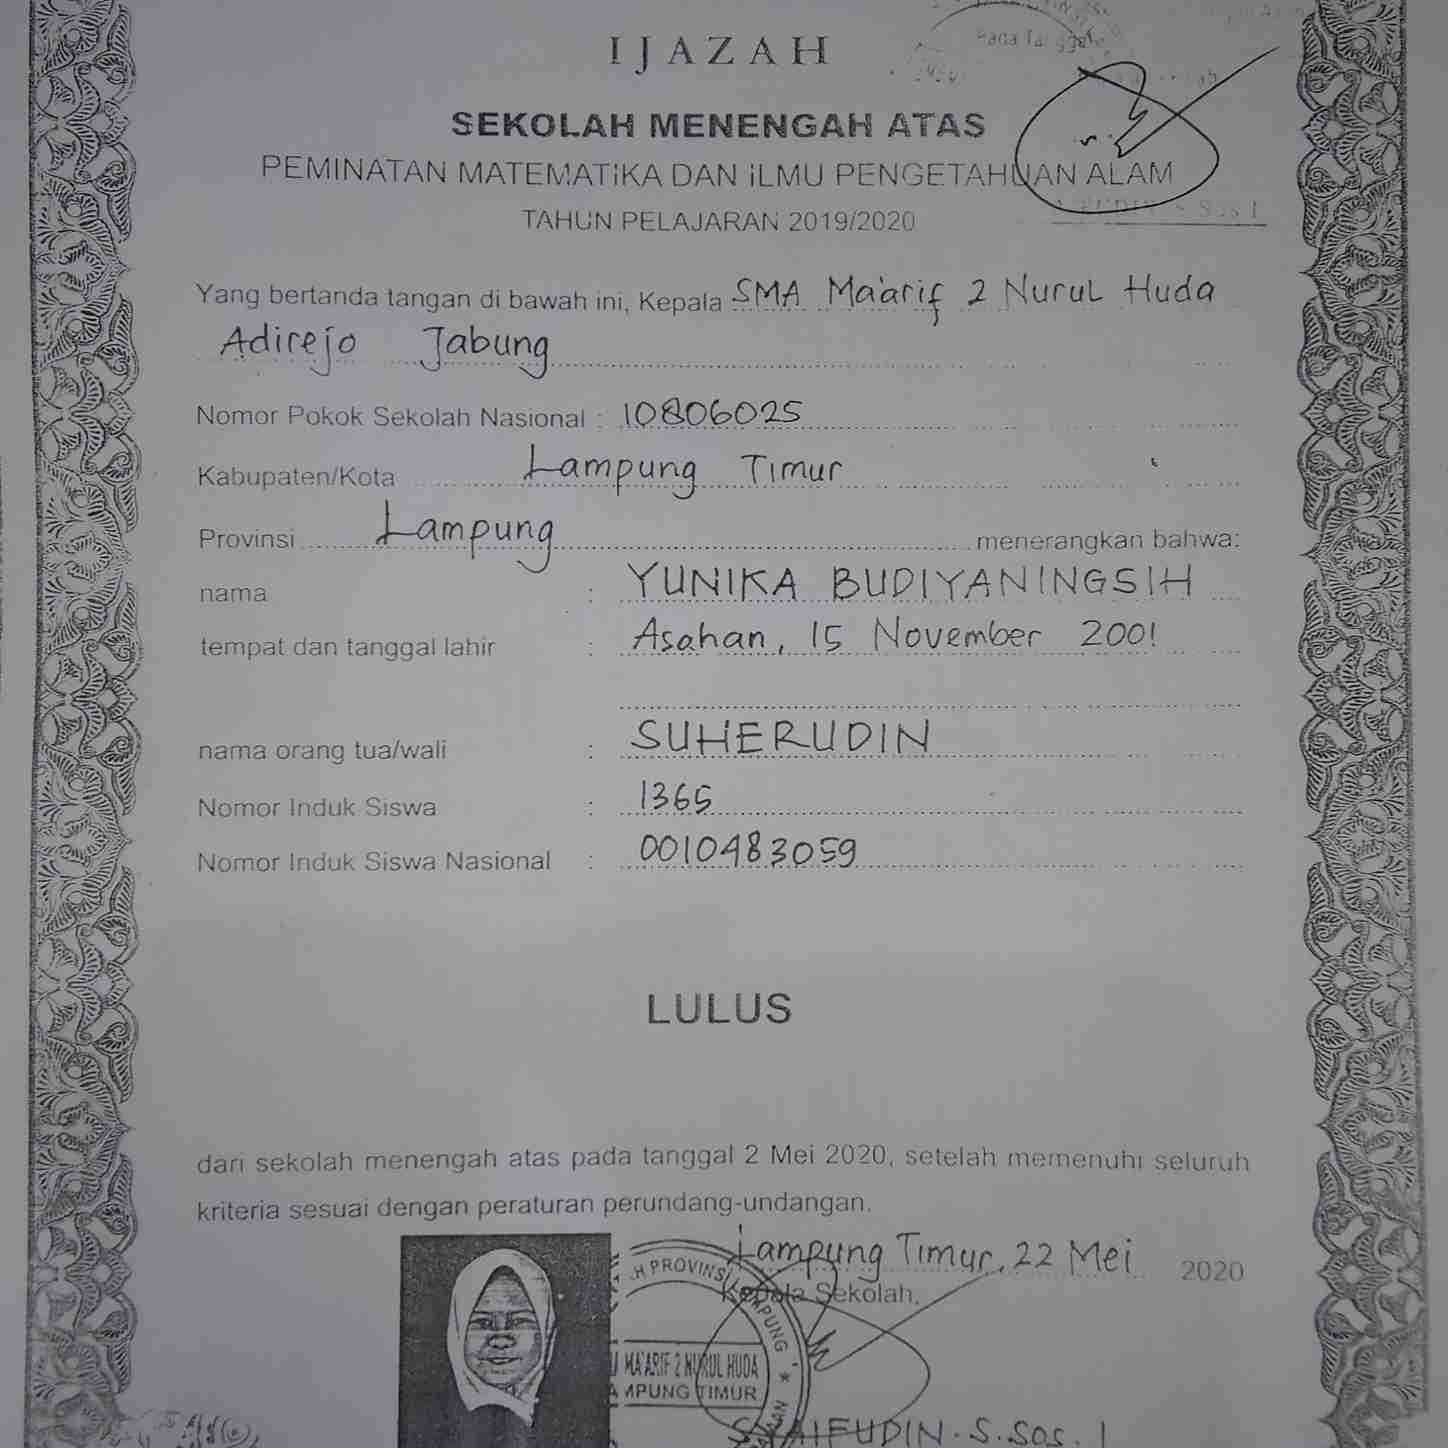 IJAZAH
SEKOLAH MENENGAH ATAS
PEMINATAN MATEMATIKA DAN ILMU PENGETAHUAN ALAM
TAHUN PELAJARAN 2019/2020
Yang bertanda tangan di bawah ini, Kepala SMA Ma'arif 2 Nurul Huda
Adirejo Jabung
Nomor Pokok Sekolah Nasional : 10806025
Kabupaten/Kota Lampung Timur
Provinsi Lampung menerangkan bahwa:
nama : YUNIKA BUDIYANINGSIH
tempat dan tanggal lahir : Asahan, 15 November 2001
nama orang tua/wali : SUHERUDIN
Nomor Induk Siswa : 1365
Nomor Induk Siswa Nasional : 0010483059
LULUS
dari sekolah menengah atas pada tanggal 2 Mei 2020, setelah memenuhi seluruh
kriteria sesuai dengan peraturan perundang-undangan.
Lampung Timur, 22 Mei 2020
Kepala Sekolah,
PROVINSI LAMPUNG
MA'ARIF 2 NURUL HUDA
TIMUR
SYAIFUDIN. S.Sos. I